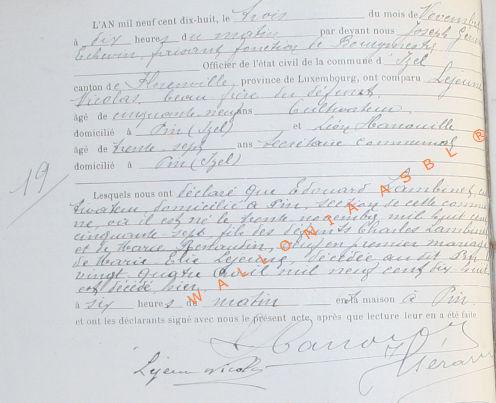 L'AN mil neuf cent dix-huit, le trois du mois de Novembre
à dix heures du matin par devant nous Joseph
Echevin, faisant fonction de Bourgmestre
Officier de l'état civil de la commune d'Izel
canton de Florenville, province de Luxembourg, ont comparu Lejeune
Nicolas, beau frère du défunt
âgé de cinquante neuf ans Cultivateur
domicilié à Pin (Izel) et Léon Hanouille
âgé de trente sept ans Secrétaire communal
domicilié à Pin (Izel)
19
Lesquels nous ont déclaré que Edouard Lambinet, cul
tivateur, domicilié à Pin, section de cette commu
ne, où il est né le trente novembre mil huit cent
cinquante sept, fils des défunts Charles Lambinet
et de Marie, époux en premier mariage
de Marie Lejeune, décédée au dit Pin
vingt quatre avril mil neuf cent dix huit
est décédé hier
à six heures du matin en la maison à Pin.
et ont les déclarants signé avec nous le présent acte, après que lecture leur en a été faite
Lejeune Nicolas
WALLONIA ASBL ®